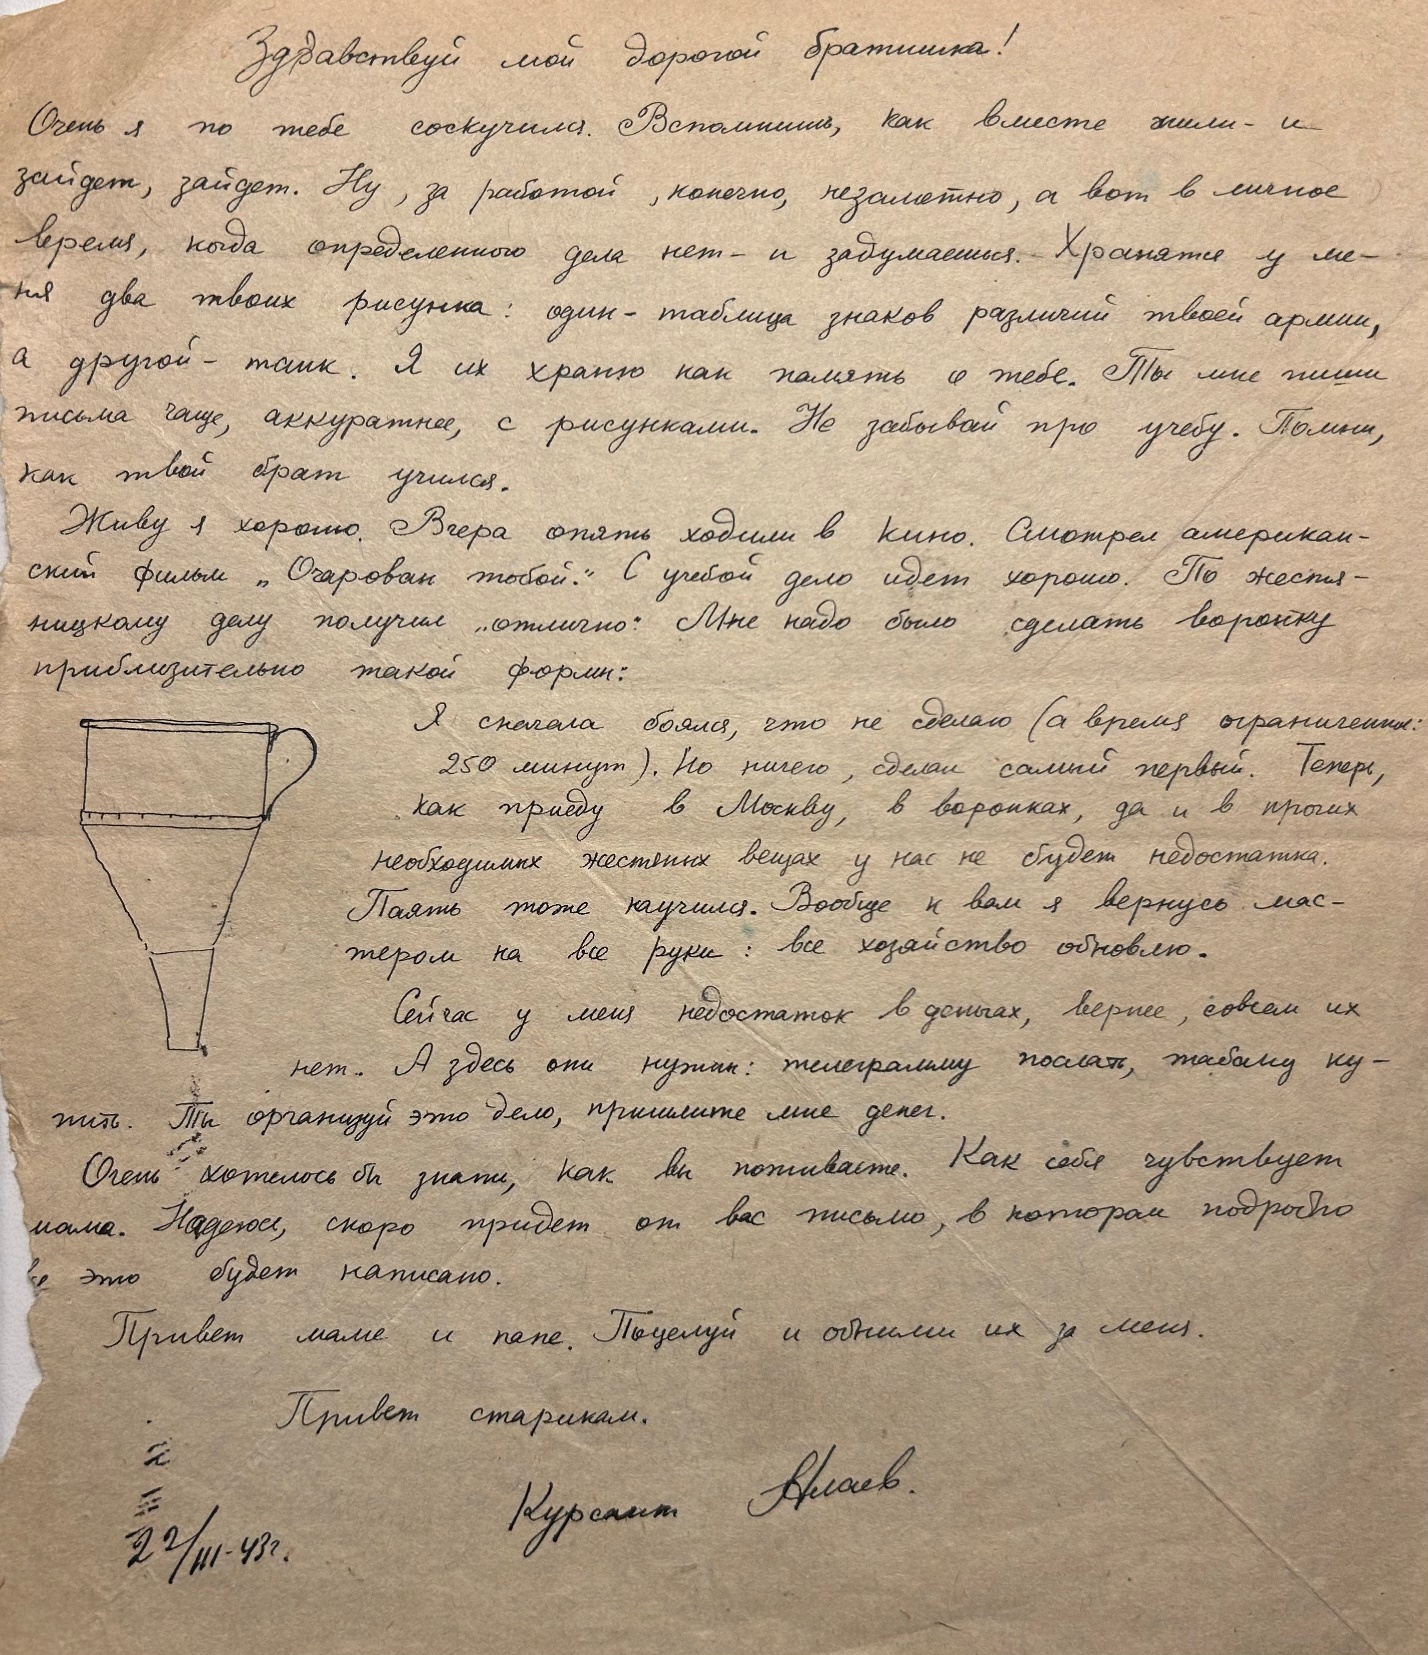 Здравствуй мой дорогой братишка!
Очень я по тебе соскучился. Вспомнишь, как вместе жили - и
зайдет, зайдет. Ну, за работой, конечно, незаметно, а вот в личное
время, когда определенного дела нет - и задумаешься. Хранятся у ме-
ня два твоих рисунка: один - таблица знаков различий твоей армии,
а другой - танк. Я их храню как память о тебе. Ты мне пиши
письма чаще, аккуратнее, с рисунками. Не забывай про учебу. Помни,
как твой брат учился.
Живу я хорошо. Вчера опять ходили в кино. Смотрел американ-
ский фильм „Очарован тобой." С учебой дело идет хорошо. По жестя-
ницкому делу получил „отлично". Мне надо было сделать воронку
приблизительно такой формы:
Я сначала боялся, что не сделаю (а время ограниченное:
250 минут). Но ничего, сделал самый первый. Теперь,
как приеду в Москву, в воронках, да и в прочих
необходимых жестяных вещах у нас не будет недостатка.
Паять тоже научился. Вообще к вам я вернусь мас-
тером на все руки: все хозяйство обновлю.
Сейчас у меня недостаток в деньгах, вернее, совсем их
нет. А здесь они нужны: телеграмму послать, табаку ку-
пить. Ты организуй это дело, пришлите мне денег.
Очень хотелось бы знать, как вы поживаете. Как себя чувствует
мама. Надеюсь, скоро придет от вас письмо, в котором подробно
все это будет написано.
Привет маме и папе. Поцелуй и обними их за меня.
Привет старикам.
Курсант
22/III-43г.